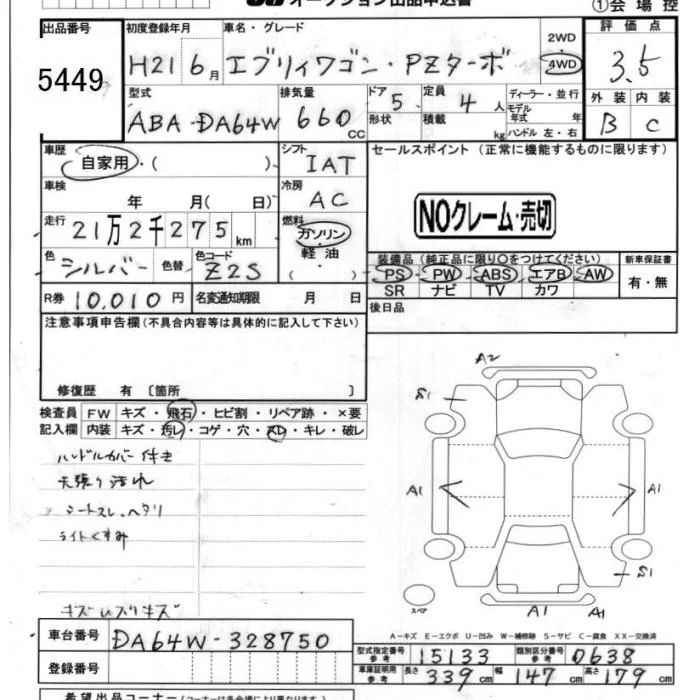 オークション出品申込書
①会場控
出品番号 初度登録年月 車名・グレード 2WD 4WD 評価点
5449 H21 6月 エブリィワゴン・PZターボ 3.5
型式 排気量 ドア 5 定員 4人 ディーラー・並行 外装 内装
ABA-DA64W 660cc 形状 積載 kg モデル年式 年 B C
ハンドル 左・右
車歴 自家用・( )・ シフト IAT セールスポイント (正常に機能するものに限ります)
車検 年 月( 日) 冷房 AC
NOクレーム・売切
走行 21万2千275km 燃料 ガソリン・軽油・( )
色 シルバー 色替 色コード Z2S
装備品(純正品に限り○をつけてください) 新車保証書
PS PW ABS エアB AW 有・無
SR ナビ TV カワ
R券 10,010円 名変通知期限 月 日 後日品
注意事項申告欄(不具合内容等は具体的に記入して下さい)
修復歴 有 〔箇所 〕
検査員 FW キズ・飛石・ヒビ割・リペア跡・×要
記入欄 内装 キズ・汚レ・コゲ・穴・スレ・キレ・破レ
ハンドルカバー付き
天張り汚れ
シートスレ、ヘタリ
ライトくすみ
A2
S1
A1 A1
S1
スペア
A1 A1
A-キズ E-エクボ U-凹み W-補修跡 S-サビ C-腐食 XX-交換済
車台番号 DA64W-328750
型式指定番号 参考 15133 類別区分番号 参考 0638
登録番号
車庫証明用 参考 長さ 339cm 幅 147cm 高さ 179cm
希望出品コーナー(コーナーは各会場により異なります)